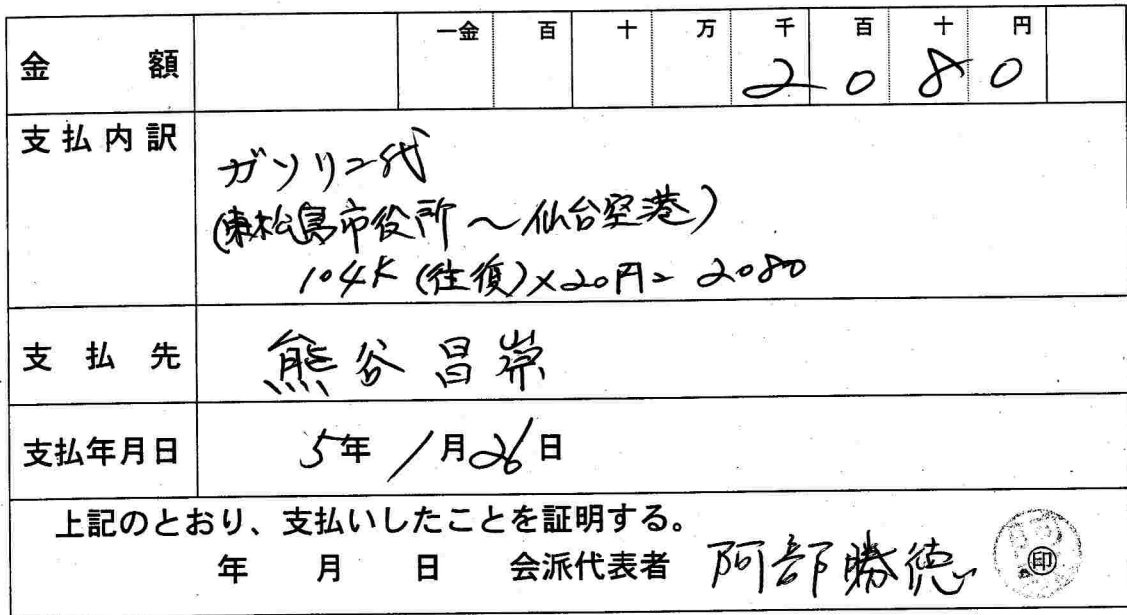 一金 百 十 万 千 百 十 円
金額 2 0 8 0
支払内訳
ガソリン代
(東松島市役所～仙台空港)
104K (往復)×20円=2080
支払先 熊谷昌崇
支払年月日 5年1月26日
上記のとおり、支払いしたことを証明する。
年 月 日 会派代表者 阿部勝徳 ㊞